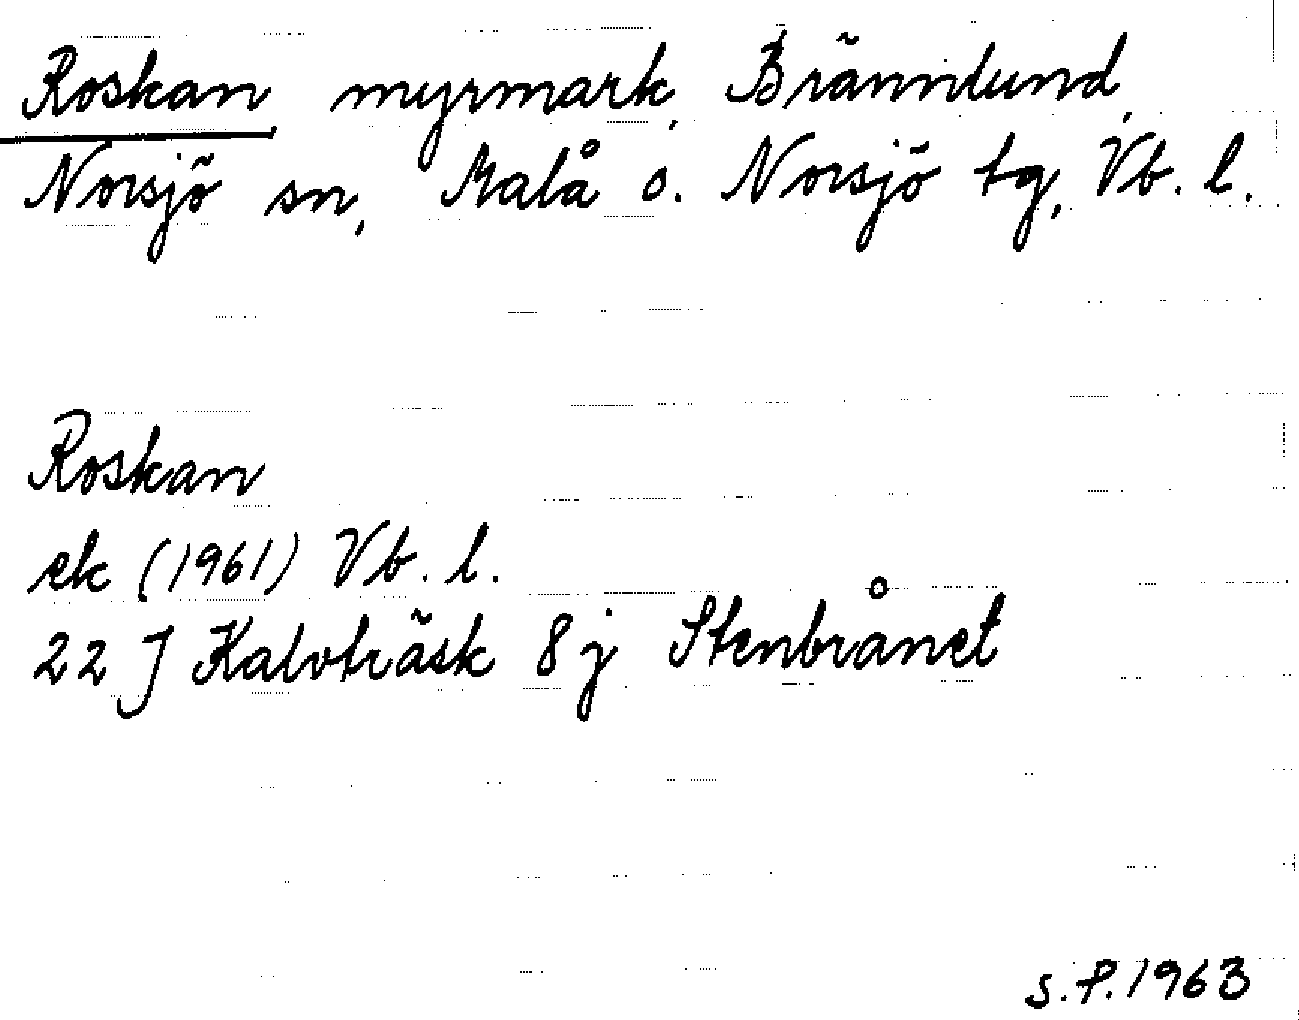 Roskan myrmark, Brännlund,
Norsjö sn, Malå o. Norsjö tg, Vb. l.
Roskan
ek (1961) Vb. l.
22 J Kalvträsk 8 j Stenbrånet
S.P. 1963